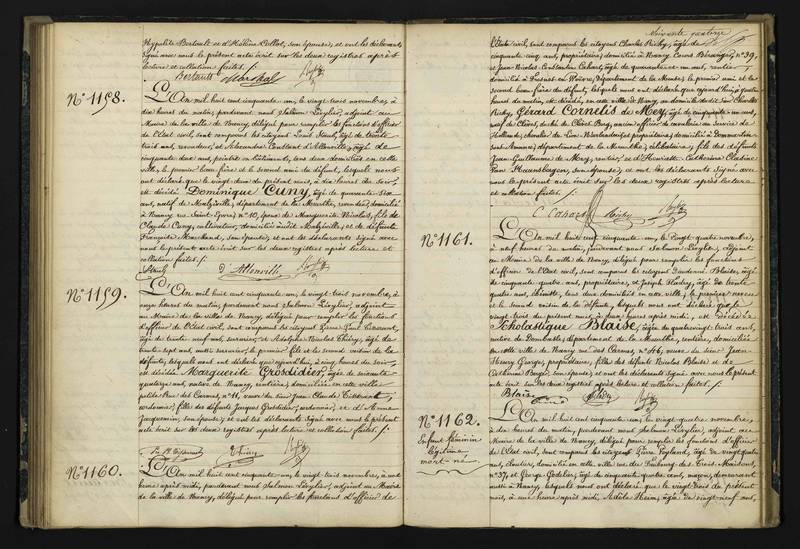 Hypolite Bertault et d'Hélène Collot, son épouse; et ont les déclarants
signé avec nous le présent acte écrit sur les deux registres après
lecture et collation faites ./.
Bertault Marchal
N° 1158.
L'An mil huit cent cinquante un, le vingt trois novembre, à
dix heures du matin, pardevant nous Salmon Lévylier, adjoint au
Maire de la ville de Nancy, délégué pour remplir les fonctions d'officier
de l'Etat civil, sont comparus les citoyens Louis âgé de trente
trois ans, et Alexandre Constant d'Allonville, âgé de
cinquante deux ans, peintre en bâtiments, tous deux domiciliés en cette
ville, le premier beau frère et le second ami du défunt, lesquels nous
ont déclaré que le vingt deux du présent mois, à dix heures du soir,
est décédé Dominique Cuny, âgé de quarante six
ans, natif de Malzéville, département de la Meurthe, domicilié
à Nancy rue Saint Epvre, n° 10, époux de Marguerite Nicolas, fils de
Claude Cuny, cultivateur, domicilié audit Malzéville, et de défunte
Françoise Marchand, son épouse; et ont les déclarants signé avec
nous le présent acte écrit sur les deux registres après lecture et
collation faites ./.
D'Allonville
N° 1159.
L'An mil huit cent cinquante un, le vingt trois novembre, à
onze heures du matin, pardevant nous Salmon Lévylier, adjoint au
Maire de la ville de Nancy, délégué pour remplir les fonctions
d'officier de l'Etat civil, sont comparus les citoyens Pierre Paul
âgé de trente neuf ans, serrurier, et Adolphe Nicolas Thiéry, âgé de
trente sept ans, aussi serrurier, le premier fils et le second voisin de la
défunte, lesquels nous ont déclaré que aujourd'hui, à cinq heures du
est décédée Marguerite Grosdidier, âgée de soixante
quatorze ans, native de Nancy, rentière, domiciliée en cette ville
petite Rue des Carmes, n° 11, veuve de Jean Claude
cordonnier, fille des défunts Jacques Grosdidier, cordonnier, et d'Anne
Jacquemin, son épouse; et ont les déclarants signé avec nous le présent
acte écrit sur les deux registres après lecture et collation faites ./.
Thiéry
N° 1160.
L'An mil huit cent cinquante un, le vingt trois novembre, à une
heure après midi, pardevant nous Salmon Lévylier, adjoint au Maire
de la ville de Nancy, délégué pour remplir les fonctions d'officier de
Soixante quatorze
l'Etat civil, sont comparus les citoyens Charles Richy, âgé de
cinquante cinq ans, propriétaire, domicilié à Nancy Cours n° 39,
et Jean Nicolas Constantin Cahart, âgé de quarante et un ans, rentier,
domicilié à Fresnes en Woëvre, département de la Meuse, le premier ami et le
second beau frère du défunt, lesquels nous ont déclaré que aujourd'hui, à quatre
heures du matin, est décédé, en cette ville de Nancy au domicile dudit sieur Charles
Richy, Gérard Cornelis de Mey, âgé de cinquante un ans,
ancien officier de cavalerie au service de
Hollande, chevalier du Lion Néerlandais, propriétaire, domicilié à Domme
département de la Meurthe, célibataire, fils des défunts
Jean Guillaume de Mey, rentier, et d'Henriette Catherine
son épouse; et ont les déclarants signé avec
nous le présent acte écrit sur les deux registres après lecture
et collation faites ./.
C. Cahart Richy
N° 1161.
L'An mil huit cent cinquante un, le vingt quatre novembre,
à neuf heures du matin, pardevant nous Salmon Lévylier, adjoint
au Maire de la ville de Nancy, délégué pour remplir les fonctions
d'officier de l'Etat civil, sont comparus les citoyens Blaise, âgé
de cinquante quatre ans, propriétaire, et Joseph âgé de trente
quatre ans, tous deux domiciliés en cette ville, le premier neveu
et le second voisin de la défunte, lesquels nous ont déclaré que le
vingt trois du présent mois, à deux heures après midi, est décédée
Scholastique Blaise, âgée de quatrevingt trois ans,
native de Dombasle, département de la Meurthe, rentière, domiciliée
en cette ville de Nancy rue des Carmes, n° 46, veuve de sieur Jean
Henry Georges, propriétaire, fille des défunts Nicolas Blaise et de
Catherine son épouse; et ont les déclarants signé avec nous le présent
acte écrit sur les deux registres après lecture et collation faites ./.
Blaise
N° 1162
Enfant féminin
légitime
mort-né
L'An mil huit cent cinquante un, le vingt quatre novembre,
à dix heures du matin, pardevant nous Salmon Lévylier, adjoint au
Maire de la ville de Nancy, délégué pour remplir les fonctions d'officier
de l'Etat civil, sont comparus les citoyens Pierre âgé de vingt quatre
ans, cloutier, domicilié en cette ville rue du Faubourg des Trois Maisons,
n° 37, et George Godelor, âgé de cinquante quatre ans, maçon, demeurant
aussi à Nancy, lesquels nous ont déclaré que le vingt trois du présent
mois, à une heure après midi, Adèle âgée de vingt neuf ans,